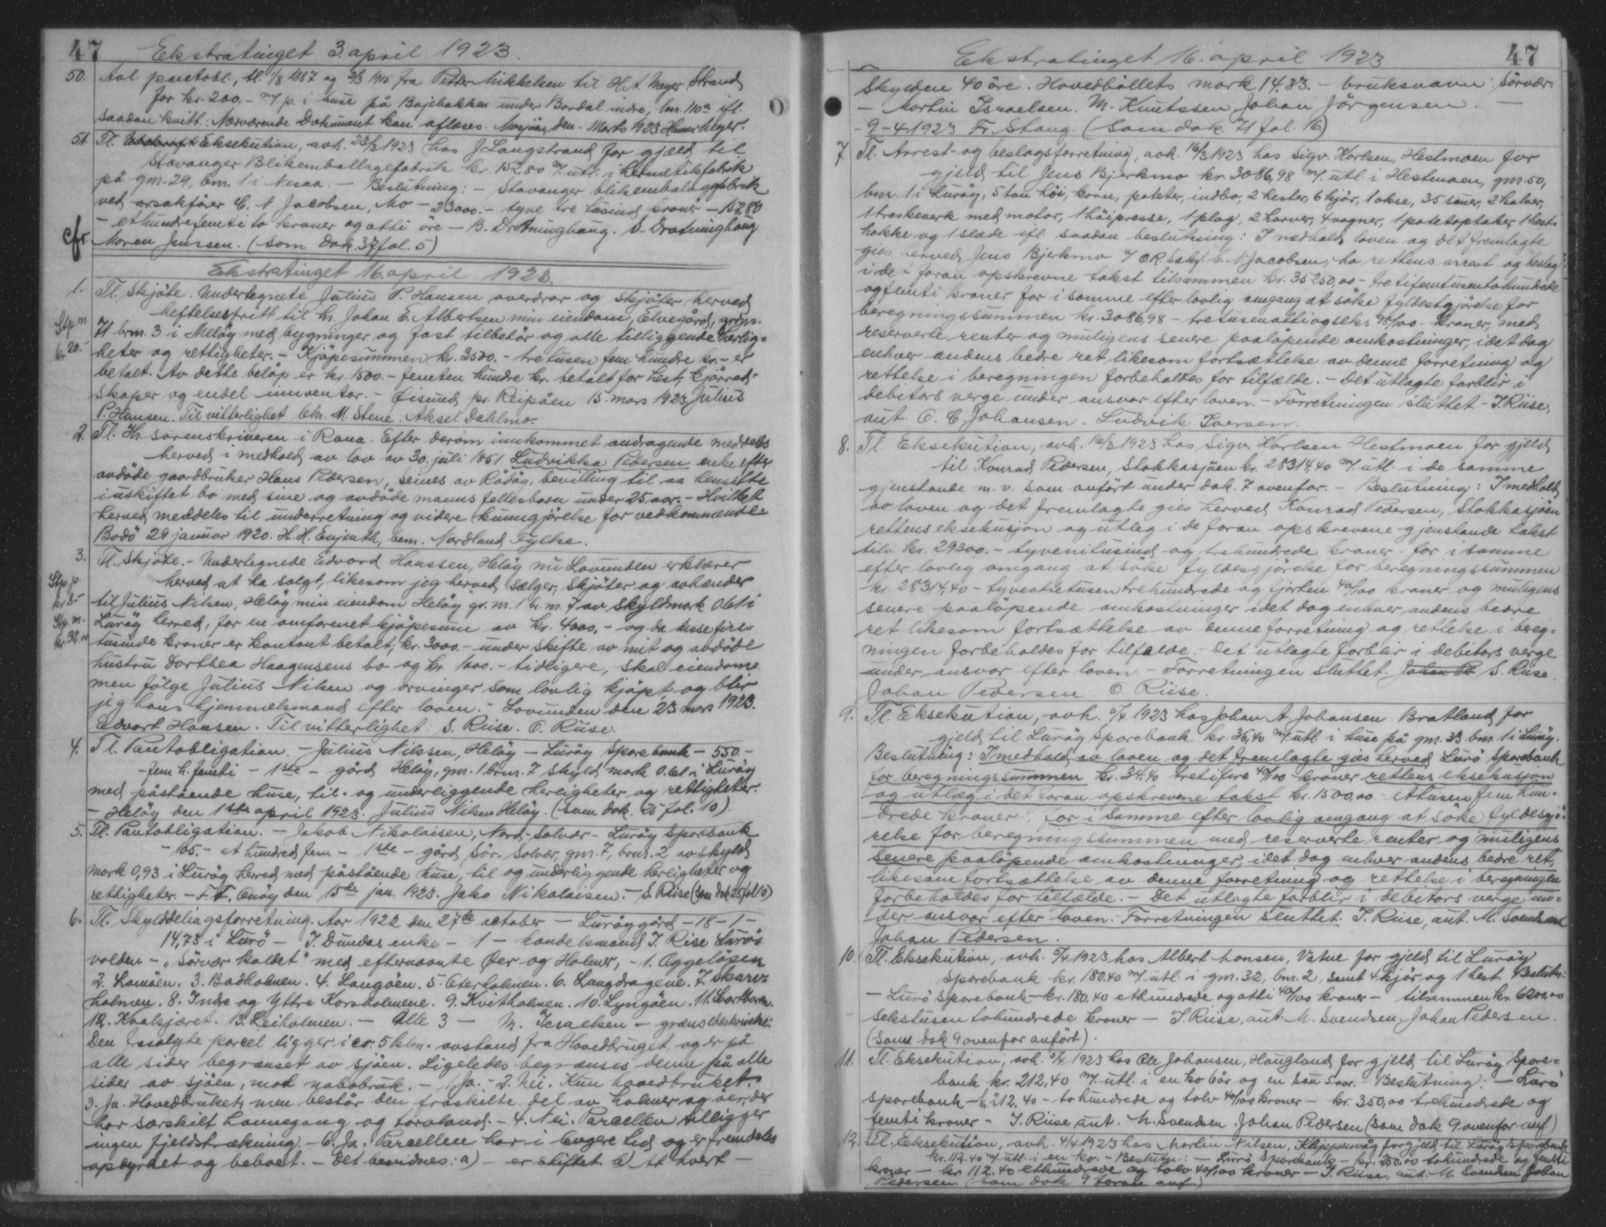 47 Ekstratinget 3 april 1923.
50. Avl pantobl., tl. 1/8 1887 og fra Peter Mikkelsen til H. A. Meyer Strand
for kr. 200.- m/ p. i huse på Bajebakken under Bardal indre, bnr. 110 efl.
saadan kvitt. Nærværende Dokument kan aflæses. Mosjøen, den - Marts 1923 Hans Meyer.
51. Tl. Eksekution, avh. 23/3 1923 hos J. Langstrand for gjæld til
Stavanger Blikemballagefabrik kr. 152,80 m/ utl. i hermetikfabrik
på gnr. 29, bnr. 1 i Nesna. - Beslutning: - Stavanger blikemballagefabrik
ved orsakfører C. N. Jacobsen, Mo - 23000.- tyve tre tusind kroner - 152,80
- ethundrefemtito kroner og otti øre - B. Drotninghaug. O. Drotninghaug
cfr Maren Jenssen. (som dok. 37 fol. 5)
Ekstratinget 16 april 1923.
1. Tl. Skjöte. Undertegnete Julius P. Hansen overdrar og skjöter herved
Stp. m. heftelsesfritt til hr. Johan E. Albertsen min eiendom, Elvegård, grnr.
kr. 20.- 71 brnr. 3 i Melöy med bygninger og fast tilbehör og alle tilliggende herlig-
heter og rettigheter. - Kjöpesummen kr. 3500.- tretusen fem hundre kr. - er
betalt. Av dette belöp er kr. 1500.- femten hundre kr. betalt for hest, kjörred-
skaper og endel innventar. - Eisund pr. Reipåen 15. mars 1923 Julius
P. Hansen. Til vitterlighet Chr. M. Stene. Aksel Dahlmo.
2. Tl. Hr. sorenskriveren i Rana. Efter derom innkommet andragende meddeles
herved i medhold av lov av 30. juli 1851 Ludvikka Pedersen enke efter
avdöde gaardbruker Hans Pedersen, Seines av Rödöy, bevilling til aa hensitte
i uskiftet bo med sine og avdöde manns fellesbarn under 25 aar. - Hvilket
herved meddeles til underretning og videre kunngjörelse for vedkommende.
Bodö 29 januar 1920. H. H. Enjenth, bem. Nordland Fylke.
3. Tl. Skjöte. - Undertegnede Edvard Hanssen, Helöy nu Lovunden erklærer
Stp. p. herved at ha solgt, likesom jeg herved sælger, skjöter og avhænder
kr. 8.- til Julius Nilsen, Helöy min eiendom Helöy gr. nr. 1 br. nr. 7 av skyldmark 0.61 i
Stp. m. Luröy herred, for en omforenet kjöpesum av kr. 4000,- og da disse fire
tusinde kroner er kontant betalt, kr. 3000.- under skifte av mit og avdöde
hustru Dorthea Haagensens bo og kr. 1000.- tidligere, skal eiendom-
men fölge Julius Nilsen og arvinger som lovlig kjöpt, og blir
jeg hans hjemmelsmand efter loven. - Lovunden den 23 mars 1923.
Edvart Hansen. Til vitterlighet: S. Riise. O. Riise.
4. Tl. Pantobligation. - Julius Nilssen, Helöy - Luröy Sparebank - 550.-
fem h. femti - 1ste - gård Helöy, gnr. 1 brnr. 7 skyld mark 0.61 i Luröy
med påstående huse, til- og underliggende herligheter og rettigheter.
- Helöy den 1ste april 1923. Julius Nilsen Helöy. (som dok. 25 fol. 10)
5. Tl. Pantobligation. - Jakob Nikolaisen, Nord-Solvær - Luröy Sparebank
- 105.- et hundred fem - 1ste - gård Sör-Solvær, gnr. 7, brnr. 2 av skyld
mark 0,93 i Luröy herred med påstående huse, til og underliggende herligheter og
rettigheter. - F. T. Onöy den 15de jan. 1923. Jako Nikolaisen. - S. Riise (som dok 25 fol 10)
6. Tl. Skylddelingsforretning. Aar 1922 den 27de october - Luröygård - 18 - 1 -
14,73 i Lurö - I. Dundas enke - 1 - handelsmand I. Riise Lurö-
volden - "Sörvær kaldet" med efternævnte Öer og Holmer, - 1. Oggelösen
2. Lamöen. 3. Badholmen. 4. Langöen. 5. Oterholmen. 6. Langdragene. 7. Skarv-
holmen. 8. Indre og Yttre Korsholmene. 9. Kvitholmen. 10. Lyngöen.
12. Kvalsjæret. 13. Leiholmen. - Alle 3 - M. Israelsen - grænsebeskrivelse:
Den frasolgte parcel ligger i ca. 5 klm. avstand fra Hovedbruget, og er på
alle sider begrænset av sjöen. Ligeledes begrænses denne på alle
sider av sjöen, mod nabobruk. - 1 Ja. - 2. Nei. Kun hovedbruket.
3. Ja. Hovedbruket, men består den fraskilte del av holmer og öer, der
har særskilt havnegang og torvland. - 4. Nei. Parcellen tilligger
ingen fjeldstrækning. - 6. Ja. Parcellen har i lengere tid og er fremdeles
opdyrket og beboet. - Det bevidnes: a) - er skiftet b) at hvert -
Ekstratinget 16. april 1923 47
Skylden 40 öre. Hovedböllets mark 14.33. - bruksnavn: Sörvær.
- Martin Israelsen. M. Knutssen, Johan Jörgensen. -
- 9-4-1923 Fr. Stang. (Som dok. 71 fol. 16)
7. Tl. Arrest- og beslagsforretning, avh. 16/3 1923 hos Sigv. Karlsen, Hestmoen for
gjeld til Jens Bjerkmo kr. 3086,98 m/ utl. i Hestmoen, gnr. 50,
bnr. 1 i Luröy, 5 ton höi, korn, poteter, indbo, 2 hester, 6 kjör, 1 okse, 35 sauer, 2 kalver,
1 treskeverk med motor, 1 höipresse, 1 plog, 2 harver, 4 vogner, 1 potetoptaker, 1 heste-
hakke og 1 slæde efl. saadan beslutning: I medhold loven og det fremlagte
gies herved Jens Bjerkmo v/ ORsakf. C. N. Jacobsen, Mo, rettens arrest og beslag
i det foran opskrevne takst tilsammen kr. 35250,00 - tretifemtusentohundrede
og femti kroner for i samme efter lovlig omgang at söke fyldestgjörelse for
beregningssummen kr. 3086,98 - tretusenottiogseks 98/100 kroner, med
reserverte renter og muligens senere paalöpende omkostninger, idet dog
enhver andens bedre ret likesom fortsættelse av denne forretning og
rettelse i beregningen forbeholdes for tilfælde. - Det utlagte forblir i
debitors verge under ansvar efter loven. - Forretningen sluttet - I. Riise,
aut. O. C. Johansen. Ludvik Iversen.
8. Tl. Eksekution, avh. 16/3 1923 hos Sigv. Karlsen Hestmoen for gjeld
til Konrad Pedersen, Stokkasjöen kr. 28314,40 m/ utl. i de samme
gjenstande m. v. som anfört under dok. 7 ovenfor. - Beslutning: I medhold
av loven og det fremlagte gies herved Konrad Pedersen, Stokkasjöen
rettens eksekusjon og utleg i de foran opskrevene gjenstande takst
tils. kr. 29300.- tyvenitusind og trehundrede kroner - for i samme
efter lovlig omgang at söke fyldesgjörelse for beregningssummen
kr. 28314,40 - tyveottetusen trehundrede og fjorten 40/100 kroner og muligens
senere paalöpende omkostninger idet dog enhver andens bedre
ret likesom fortsættelse av denne forretning og rettelse i bereg-
ningen forbeholdes for tilfælde. - Det utlagte forblir i debitors verge
under ansvar efter loven. - Forretningen sluttet. S. Riise.
Johan Pedersen. O. Riise.
9. Tl. Eksekution, avh. 4/4 1923 hos Johan A. Johansen Bratland for
gjeld til Luröy Sparebank kr. 34,40 m/ utl. i huse på gnr. 33 bnr. 1 i Luröy.
Beslutning: I medhold av loven og det fremlagte gies herved Lurö Sparebank
for beregningssummen kr. 34.40 tretifire 40/100 kroner rettens eksekusjon
og utlæg i det foran opskrevne takst kr. 1500,00 - ettusen fem hun-
drede kroner - for i samme efter lovlig omgang at söke fyldesgjö-
relse for beregningssummen med reserverte renter og muligens
senere paalöpende omkostninger, idet dog enhver andens bedre ret,
likesom fortsættelse av denne forretning og rettelse i beregningen
forbeholdes for tilfælde. - Det utlagte forblir i debitors verge un-
der ansvar efter loven. Forretningen sluttet. I. Riise, aut. M. Svendsen
Johan Pedersen.
10. Tl. Eksekution, avh. 4/4 1923 hos Albert Hansen, Vatne for gjeld til Luröy
Sparebank kr. 180.40 m/ utl. i gnr. 32, bnr. 2, samt 4 kjör og 1 hest. Beslutn:
- Lurö Sparebank - kr. 180.40 ethundrede og otti 40/100 kroner - tilsammen kr. 6200,00
sekstusen tohundrede kroner - I. Riise, aut. M. Svendsen. Johan Pedersen.
(Som dok 9 ovenfor anfört).
11. Tl. Eksekution, avh. 4/4 1923 hos Ole Johansen, Haugland for gjeld til Luröy Spare-
bank kr. 212,40 m/ utl. i en ko 6 år og en sau 5 aar. Beslutning: - Lurö
Sparebank - kr. 212,40 - tohundrede og tolv 40/100 kroner - kr. 350,00 trehundrede og
femti kroner - I. Riise, aut. M. Svendsen. Johan Pedersen (som dok 9 ovenfor anf.)
12. Tl. Eksekution, avh. 4/4 1923 hos Martin Nilsen, for gjeld til Luröy Sparebank
kr. 112.40 m/ utl. i en ko. - Beslutn: - Lurö Sparebank - kr. 250,00 tohundrede og femti
kroner - kr. 112.40 ethundrede og tolv 40/100 kroner - I. Riise, aut. M. Svendsen. Johan
Pedersen (som dok 9 foran anf.)